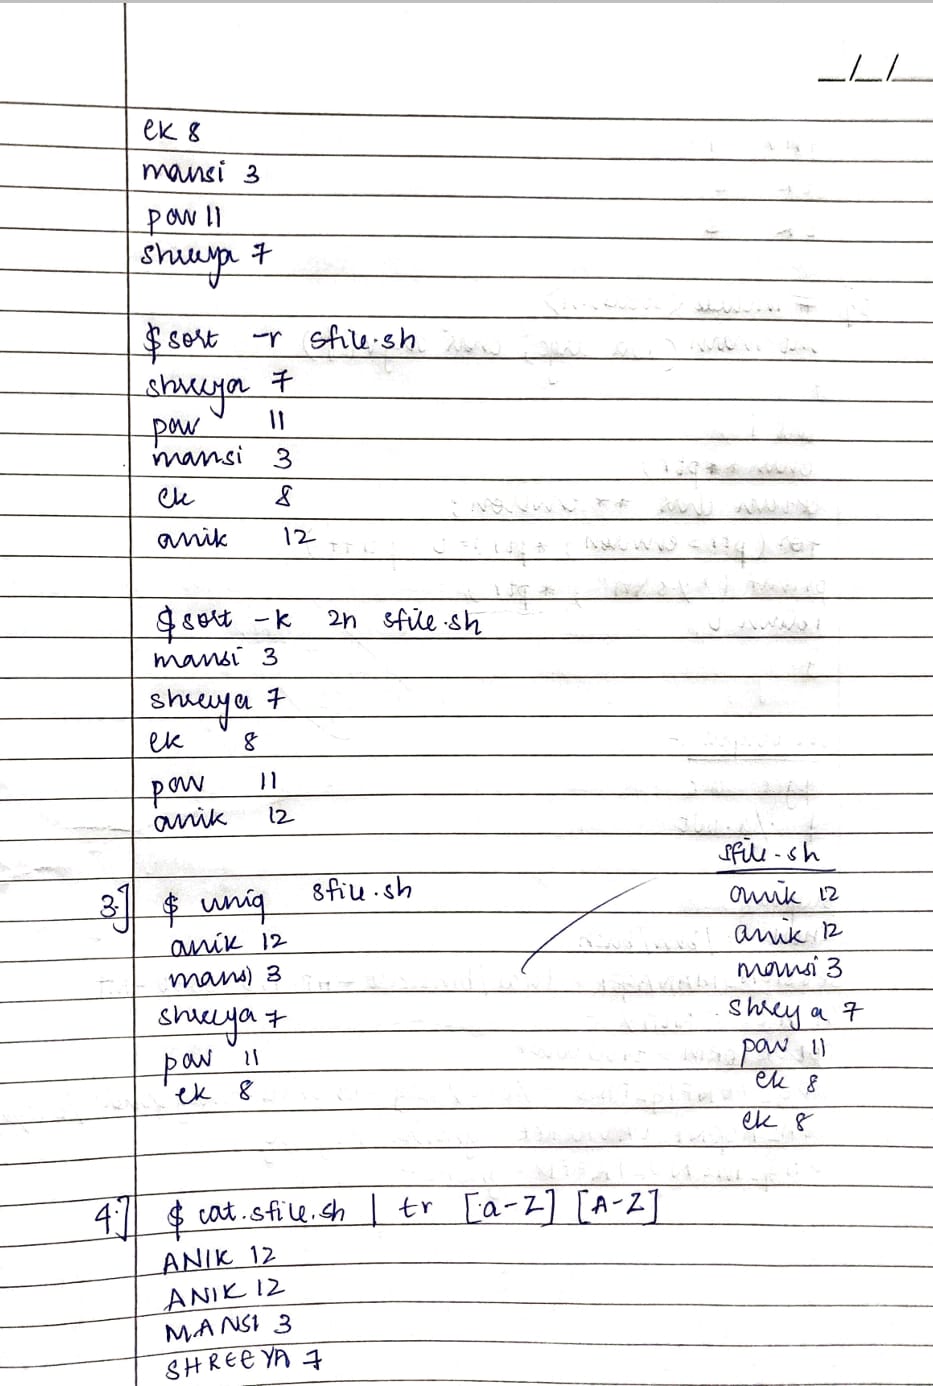 _/_/
ek 8
mansi 3
pow 11
shreeya 7
$ sort -r sfile.sh
shreeya 7
pow 11
mansi 3
ek 8
anik 12
$ sort -k 2n sfile.sh
mansi 3
shreeya 7
ek 8
pow 11
anik 12
3.] $ uniq sfile.sh
anik 12
mansi 3
shreeya 7
pow 11
ek 8
sfile.sh
anik 12
anik 12
mansi 3
shreya 7
pow 11
ek 8
ek 8
4.] $ cat.sfile.sh | tr [a-z] [A-Z]
ANIK 12
ANIK 12
MANSI 3
SHREEYA 7